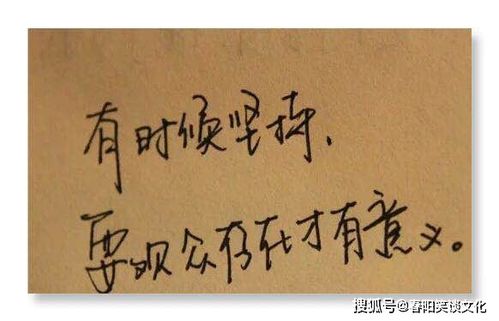 有时候坚持，
要观众存在才有意义。
搜狐号@春阳笑谈文化